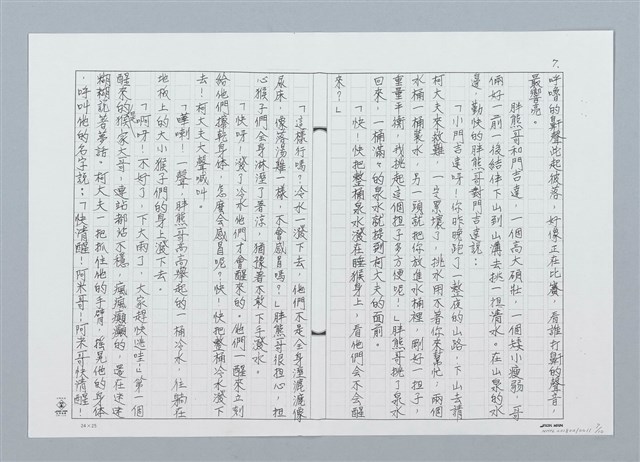 7.
呼嚕的鼾聲此起彼落,好像正在比賽,看誰打鼾的聲音,
最響亮。
胖熊哥和門吉達,一個高大碩壯,一個矮小瘦弱,哥
倆好一前一後結伴下山到山溝去挑一担清水。在山泉的水
邊,勤快的胖熊哥對門吉達說:
「小門吉達呀!你昨晚跑了一整夜的山路,下山去請
柯大夫來救難,一定累壞了,挑水用不著你來幫忙,兩個
水桶一桶裝水,另一頭就把你放進水桶裡,剛好一担子,
重量平衡,我挑起這個担子多方便呢!」胖熊哥挑了泉水
回來,一桶滿滿的泉水就提到柯大夫的面前。
「快!快把整桶泉水潑在睡猴身上,看他們會不會醒
來?」
「這樣行嗎?冷水一潑下去,他們不是全身溼漉漉像
尿床,像落湯雞一樣,不會感冒嗎?」胖熊哥很担心,担
心猴子們全身淋溼了着涼,猶豫著不敢下手潑水。
「快呀!潑了冷水他們才會醒來的。他們一醒來立刻
給他們擦乾身体,怎麼會感冒呢?快!快把整桶冷水潑下
去!柯大夫大聲喊叫。
「嘩唎!一聲,胖熊哥高高舉起的一桶冷水,往躺在
地板上的大小猴子們的身上潑下去。
「啊呀!不好了!下大雨了,大家趕快逃哇!」第一個
醒來的猴家大哥,連站都站不穩,瘋瘋癲癲的,還在迷迷
糊糊說著夢話。柯大夫一把抓住他的手臂,搖晃他的身体
,呼叫他的名字說:「快清醒!阿米哥!阿米哥快清醒!
24×25